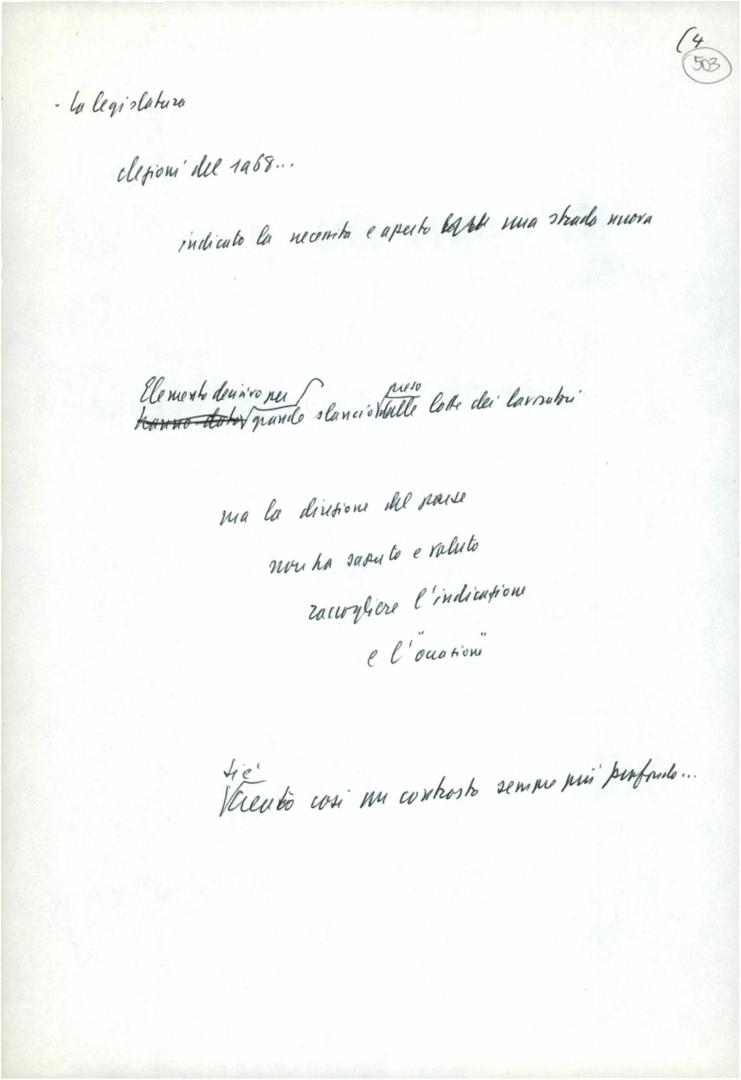 (4
503
- La legislatura
elezioni del 1968...
indicato la necessità e aperto una strada nuova
Elemento decisivo per
preso
hanno dato grande slancio dalle lotte dei lavoratori
ma la direzione del paese
non ha saputo e voluto
raccogliere l'indicazione
e l'"occasione"
si è
creato così un contrasto sempre più profondo...